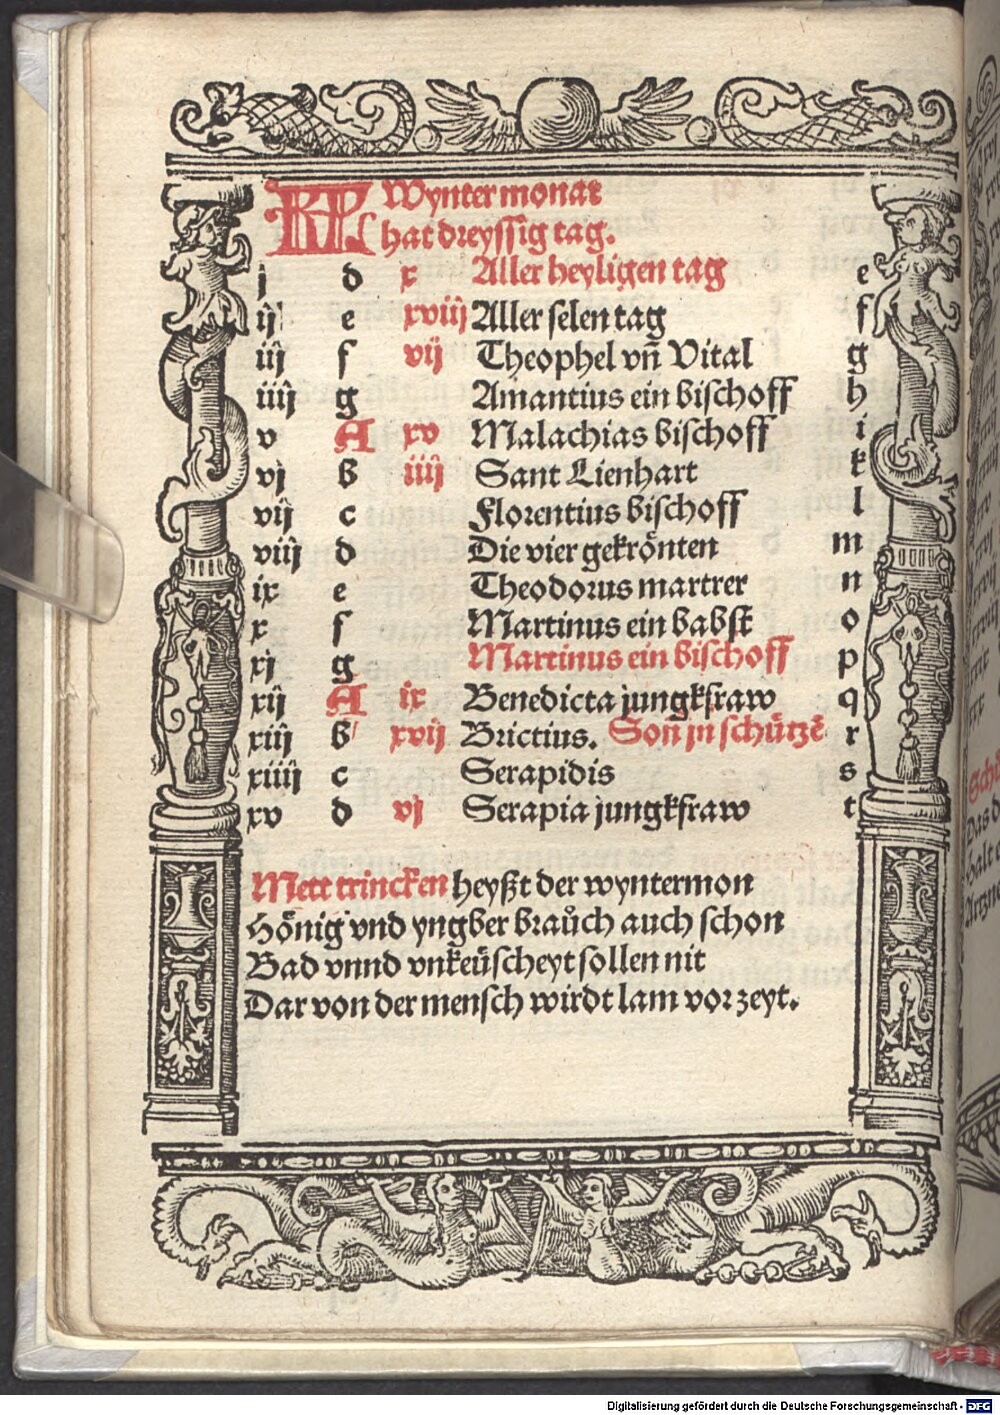 KL Wynter monat
hat dreyssig tag.
j d x Aller heyligen tag e
ij e xviij Aller selen tag f
iij f vij Theophel vñ Vital g
iiij g Amantius ein bischoff h
v A xv Malachias bischoff i
vj b iiij Sant Lienhart k
vij c Florentius bischoff l
viij d Die vier gekrönten m
ix e Theodorus martrer n
x f Martinus ein babst o
xj g Martinus ein bischoff p
xij A ix Benedicta jungkfraw q
xiij b xvij Brictius. Soñ jn schützē r
xiiij c Serapidis s
xv d vj Serapia jungkfraw t
Mett trincken heyßt der wyntermon
Hönig vnd yngber braůch auch schon
Bad vnnd vnkeüscheyt sollen nit
Dar von der mensch wirdt lam vor zeyt.
Digitalisierung gefördert durch die Deutsche Forschungsgemeinschaft - DFG